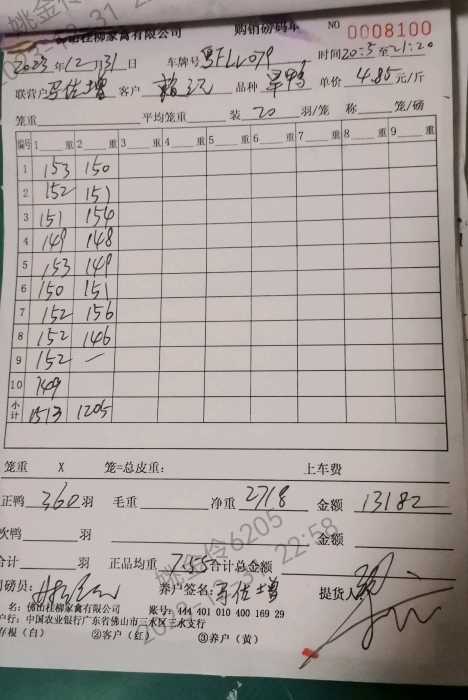 佛山桂柳家禽有限公司 购销磅码单 NO 0008100
2023年12月31日 车牌号 时间20:5至21:20
联营户 客户 品种 旱鸭 单价 4.85 元/斤
笼重 平均笼重 装 20 羽/笼 称 笼/磅
编号 1 重 2 重 3 重 4 重 5 重 6 重 7 重 8 重 9 重
1 153 150
2 152 151
3 151 154
4 149 148
5 153 149
6 150 151
7 152 156
8 152 146
9 152 —
10 149
小计 1513 1205
笼重 X 笼=总皮重: 上车费
正鸭 360 羽 毛重 净重 2718 金额 13182
次鸭 羽 金额
合计 羽 正品均重 7.55 合计总金额
司磅员: 养户签名: 提货人
名: 佛山桂柳家禽有限公司 账号: 444 401 010 400 169 29
户行: 中国农业银行广东省佛山市三水区三水支行
存根（白） ②客户（红） ③养户（黄）